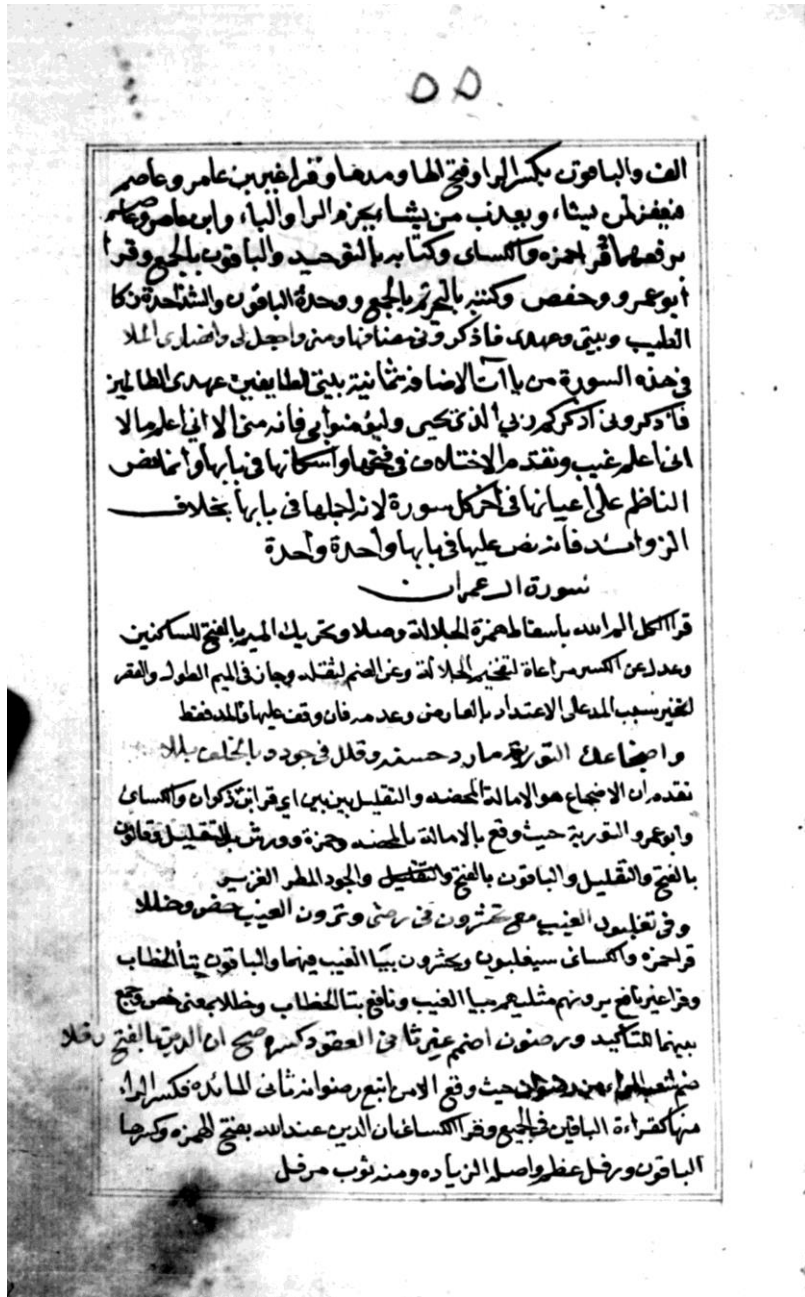 ٥٥
الف والباقون بكسر الرا وفتح الها ومدها وقرا غير ابن عامر وعاصم
فيغفر لمن يشاء ويعذب من يشاء بجزم الرا والباء وابن عامر وعاصم
برفعهما قرا حمزه والكساى وكتابه بالتوحيد والباقون بالجمع وقرا
أبو عمرو وحفص وكتبه بالتحريم بالجمع ووحدة الباقون
وبيتى وعهدى فاذكرونى مضافها ومنى واجعل لى وانصارى الملا
فى هذه السورة من ياآت الاضافة ثمانية بيتى لطايفين عهدى الظالمين
فاذكرونى اذكركم ربي الذى يحيى وليؤمنوا بى فانه منى الا انى اعلم مالا
انى اعلم غيب وتقدم الاختلاف فى فتحها واسكانها فى بابها وانما نص
الناظم على اعيانها فى آخر كل سورة لانه اجملها فى بابها بخلاف
الزوائد فانه نص عليها فى بابها واحدة واحدة
سورة ال عمران
قرا الكل الم الله باسقاط همزة الجلالة وصلا وتحريك الميم بالفتح للساكنين
وعدل عن الكسر مراعاة لتفخيم الجلالة وعن الضم لثقله وجاز فى الميم الطول والقصر
لتغير سبب المد على الاعتداد بالعارض وعدمه فان وقف عليها فالمد فقط
واضجاعك التورية مارد حسنه وقلل فى جود وبالخلف بللا
تقدم ان الاضجاع هو الامالة المحضه والتقليل بين بين اى قرا ابن ذكوان والكساى
وابو عمرو التورية حيث وقع بالامالة المحضه وحمزة وورش بالتقليل وقالون
بالفتح والتقليل والباقون بالفتح والجود المطر الغزير
وفى تغلبون الغيب مع تحشرون فى رضى وترون الغيب خص وخللا
قرا حمزه والكساى سيغلبون ويحشرون بيا الغيب فيهما والباقون بتا الخطاب
وقرا غير نافع يرونهم مثليهم بيا الغيب ونافع بتا الخطاب وخللا بمعنى خص وجمع
بينهما للتاكيد ورضوان اضمم غير ثانى العقود كسره صح ان الدين بالفتح رفلا
ضم شعبة الراء من رضوان حيث وقع الا من اتبع رضوانه ثانى المائده فكسر الراء
منها كقراءة الباقين فى الجميع وقرا الكساى ان الدين عند الله بفتح الهمزه وكسرها
الباقون ورفل عظم واصله الزياده ومنه ثوب مرفل